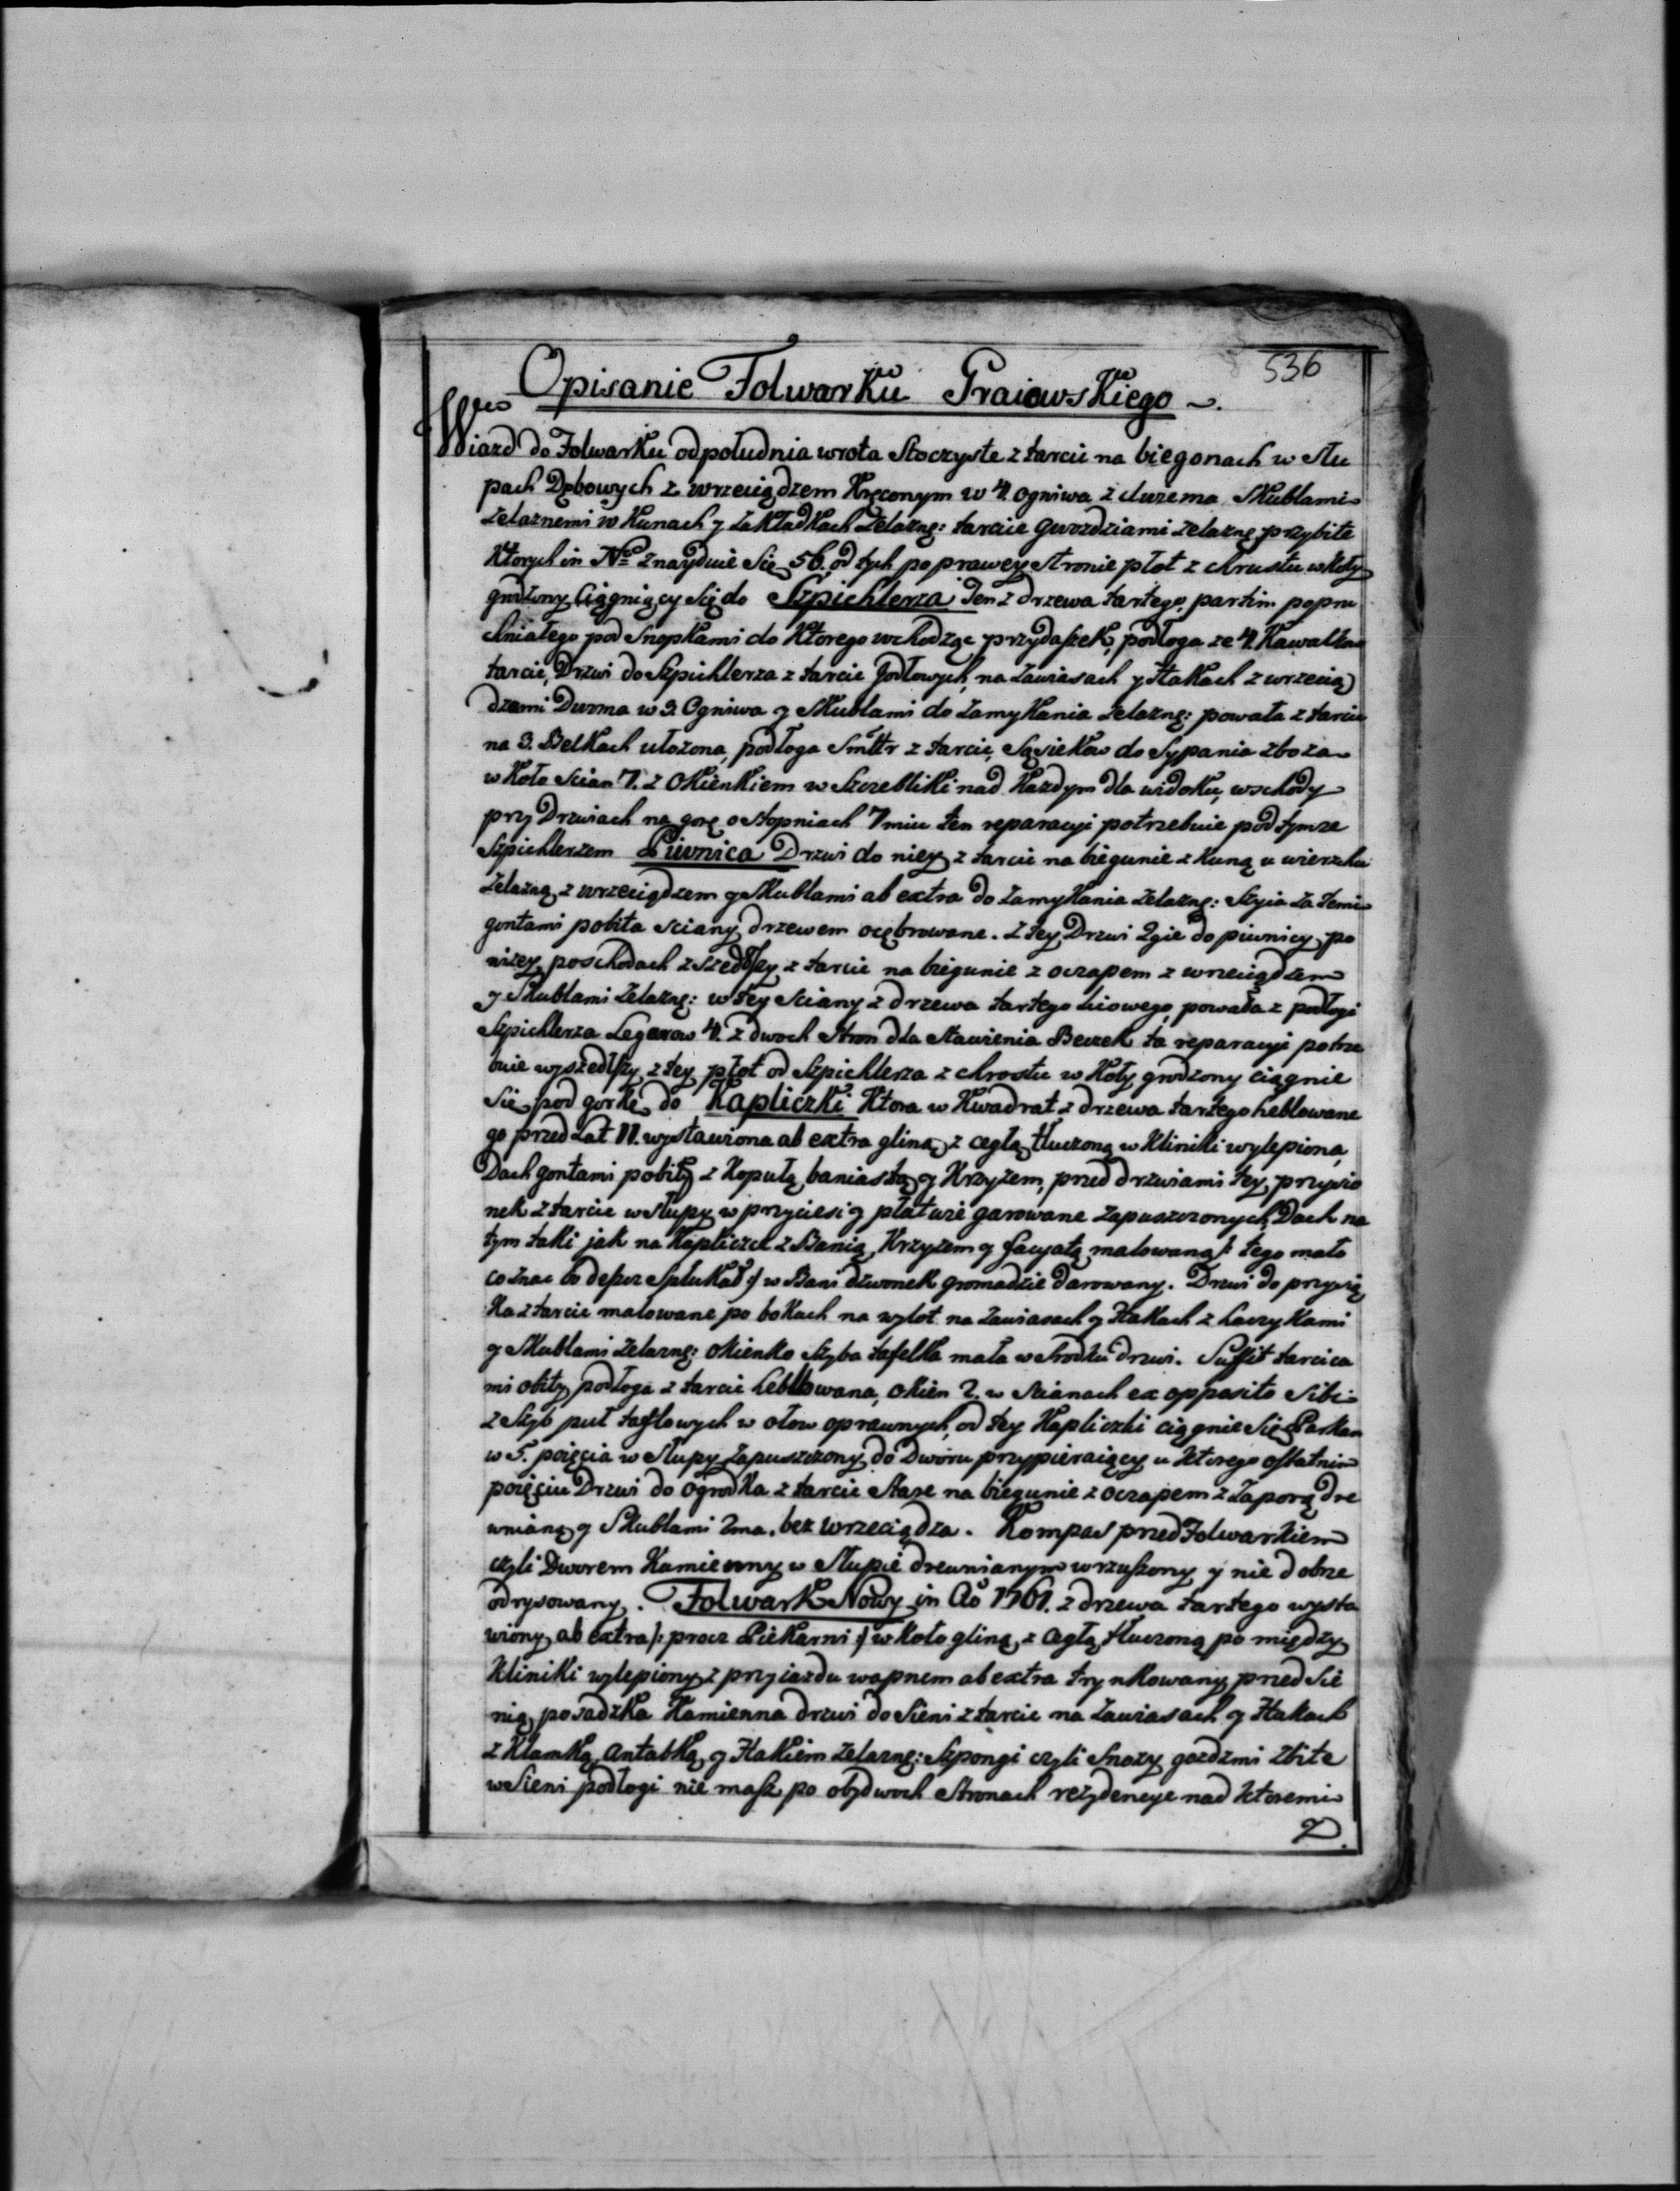 536
Opisanie Folwarku Graiowskiego
Wiazd do Folwarku od południa wrota Stoczyste z tarcic na biegonach w Słu
pach Dębowych z wrzeciądzem Kręconym w 4. ogniwa z dwiema Skublami
Zelaznemi w Kunach y Zakładkach Zelazne: tarcice gwozdziami zelazne przybite
Ktorych in Nro Znayduie Się 56. od tych po prawey stronie płot z chrustu w Koły
grodzony Ciągniący Się do Szpichlerza Ten z drzewa tartego, partim popru
chniałego pod Snopkami do Ktorego wchodząc przydaszek, podłoga ze 4. Kawałkow
tarcic, Drzwi do Szpichlerza z tarcic Jodłowych, na Zawiasach y Hakach z wrzecią
dzami Dwoma w 3. Ogniwa y Skublami do Zamykania Zelazne: powała z tarcic
na 3. Belkach ułożona, podłoga Smttr z tarcic, Sąsieków do Sypania zboza
w Koło Scian 7. z Okienkiem w Szczebliki nad Kazdym dla widoku, wschody
przy Drzwiach na gorę o stopniach 7miu ten reparacyi potrzebuie pod tymze
Szpichlerzem Piwnica Drzwi do niey z tarcic na biegunie z Kuną u wierzchu
Zelazną z wrzeciądzem y Skublami ab extra do Zamykania Zelazne: Szyia Za Temi
gontami pobita sciany drzewem ocębrowane. Z tey Drzwi 2gie do piwnicy po
nizey po schodach zszedłszy z tarcic na biegunie z oczapem z wrzeciądzem
y Skublami Zelazne: w tey Sciany z drzewa tartego powała z podłogi
Szpichlerza Legarow 4. z dwoch Stron dla Stawienia Beczek ta reparacyi potrze
buie wyszedłszy z tey płot od Szpichlerza z chrostu w Koły grodzony ciągnie
Się pod gorkę do Kapliczki Ktora w Kwadrat z drzewa tartego heblowane
go przed Lat 11. wystawiona ab extra gliną z cegłą tłuczoną w Kliniki wylepiona,
Dach gontami pobity z Kopułą baniastą y Krzyzem, przed drzwiami tey, przysio
nek z tarcic w słupy w przyciesi y płatwie garowane Zapuszczonych, Dach na
tym taki jak na Kapliczce z Banią Krzyzem y facyatą malowaną /: tego mało
co Znac bo deszcz Spłukał :/ w Bani dzwonek gromadzie darowany. Drzwi do przysią
Ka z tarcic malowane po bokach na wylot na Zawiasach y Hakach z haczykami
y Skublami Zelazne: Okienko Szyba tafelka mała w Srodku drzwi. Suffit tarcica
mi obity, podłoga z tarcic heblowana, Okien 2. w Scianach ex opposito Sibi
z Szyb puł taflowych w ołow oprawnych, od tey Kapliczki ciągnie Się Parkan
w 5. poięcia w Słupy Zapuszczony do Dworu przypieraiący u Ktorego ostatnim
poięciu Drzwi do ogrodka z tarcic Stare na biegunie z oczapem z Zaporą dre
wnianą y Skublami 2ma. bez wrzeciądza. Kompas przed Folwarkiem
czyli Dworem Kamienny w Słupie drewnianym wrzuszony y nie dobrze
odrysowany. Folwark Nowy in Ao 1761. z drzewa tartego wysta
wiony ab extra /: procz Piekarni :/ w Koło gliną, z cegłą tłuczoną po między
Kliniki wylepiony z przyiazdu wapnem ab extra trynkowany, przed Sie
nią posadzka Kamienna drzwi do Sieni z tarcic na Zawiasach y Hakach
z Klamką, antabką, y Hakiem Zelazne: Szpongi czyli Snozy gozdzmi Zbite
w Sieni podłogi nie masz, po obydwoch Stronach rezydencye nad Ktoremi